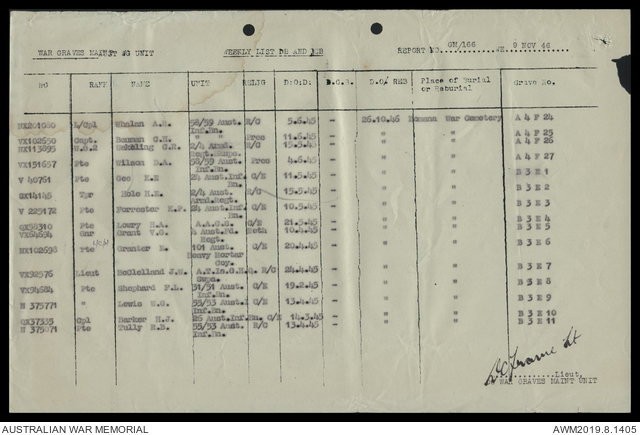 WAR GRAVES MAINT UNIT WEEKLY LIST DB AND REPORT NO GM/166 9 NOV 46
NO RANK NAME UNIT RELIG D:O:D: D.O.B. D.O. RES Place of Burial or Reburial Grave No.
L/Cpl Whelan A.R. 58/59 Aust. Inf.Bn. R/C 5.6.45 - 26.10.46 Bomana War Cemetery A 4 F 24
VX102590 Capt. Baxman G.H. " " Pres 11.6.45 - " " A 4 F 25
VX113895 W.O.2 C.R. 2/4 Armd. Regt. R/C 15.5.45 - " " A 4 F 26
VX151657 Pte Wilson D.A. 58/59 Aust Inf.Bn. Pres 4.6.45 - " " A 4 F 27
V 40761 Pte Gee E.E 24 Aust.Inf Bn. C/E 11.5.45 - " " B 3 E 1
QX14145 Tpr Hole H.N. 2/4 Aust Armd.Regt. " 15.5.45 - " " B 3 E 2
V 225172 Pte Forrester E.P. 24 Aust.Inf Bn. C/E 10.5.45 - " " B 3 E 3
QX58310 Pte Loury H.A. A.A.G.S. C/E 21.5.45 - " " B 3 E 4
VX64694 Gnr Grant V.G. 4 Aust.Fd. Regt. Meth 10.4.45 - " " B 3 E 5
NX102698 Pte Granter R. 101 Aust. Heavy Mortar Coy. C/E 20.4.45 - " " B 3 E 6
VX92576 Lieut McClelland J.M. R/C 24.4.45 - " " B 3 E 7
VX94684 Pte Shephard F.L. 31/51 Aust. Inf.Bn. C/E 19.2.45 - " " B 3 E 8
N 375771 " Lewis W.G. 55/53 Aust.I Inf.Bn. C/E 13.4.45 - " " B 3 E 9
QX37335 Cpl Barker H.J. 26 Aust.Inf.Bn. C/E 14.3.45 - " " B 3 E 10
N 375071 Pte Tully M.B. 55/53 Aust. Inf.Bn. R/C 13.4.45 - " " B 3 E 11
Lt
Lieut,
WAR GRAVES MAINT UNIT
AUSTRALIAN WAR MEMORIAL AWM2019.8.1405